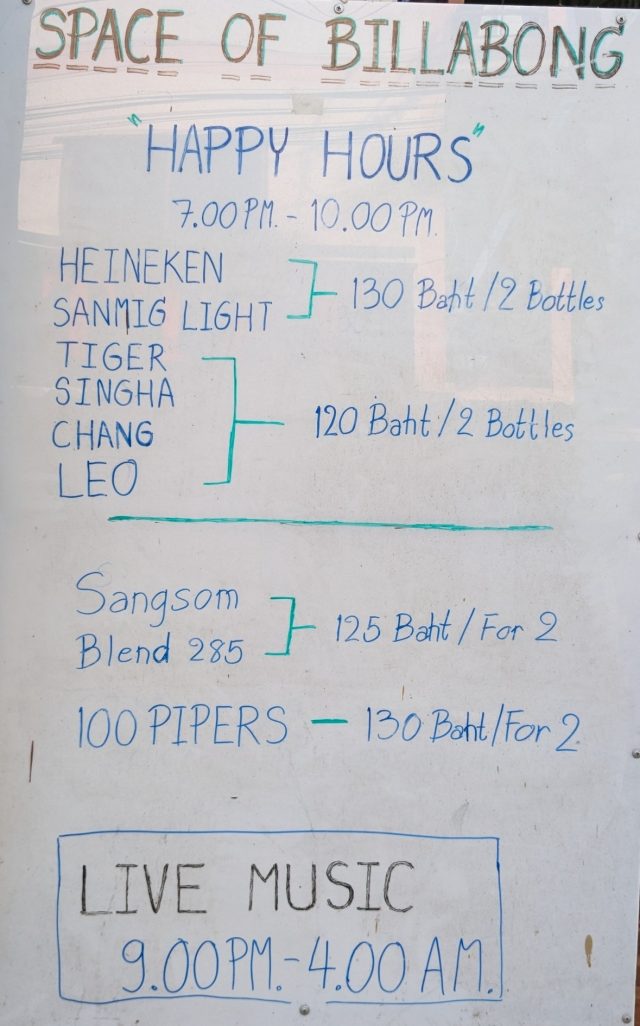 SPACE OF BILLABONG
"HAPPY HOURS"
7.00 P.M. - 10.00 P.M.
HEINEKEN
SANMIG LIGHT
130 Baht / 2 Bottles
TIGER
SINGHA
CHANG
LEO
120 Baht / 2 Bottles
Sangsom
Blend 285
125 Baht / For 2
100 PIPERS — 130 Baht/For 2
LIVE MUSIC
9.00 P.M. - 4.00 A.M.